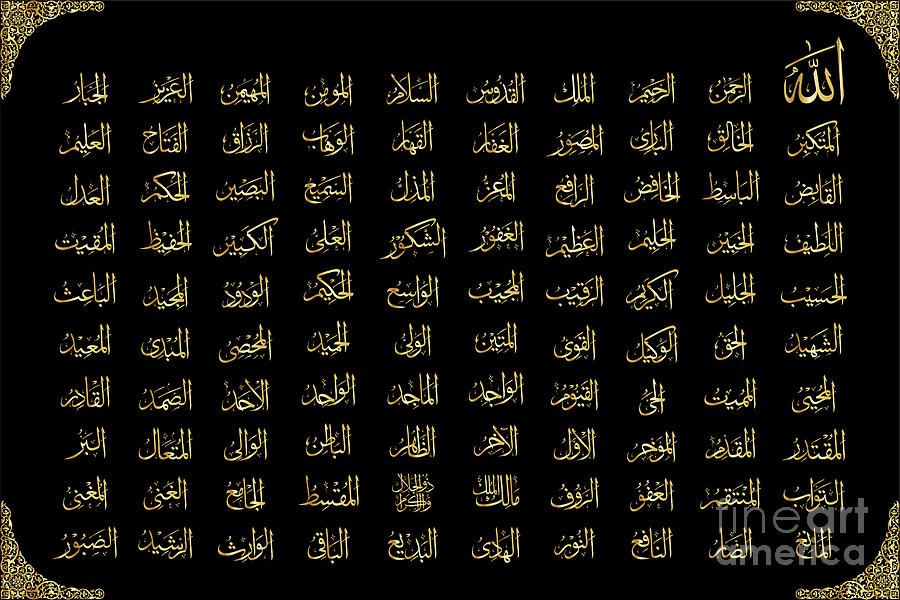 الله الرحمن الرحيم الملك القدوس السلام المومن المهيمن العزيز الجبار
المتكبر الخالق الباري المصور الغفار القهار الوهاب الرزاق الفتاح العليم
القابض الباسط الخافض الرافع المعز المذل السميع البصير الحكم العدل
اللطيف الخبير الحليم العظيم الغفور الشكور العلى الكبير الحفيظ المقيت
الحسيب الجليل الكريم الرقيب المجيب الواسع الحكيم الودود المجيد الباعث
الشهيد الحق الوكيل القوى المتين الولى الحميد المحصى المبدى المعيد
المحيى المميت الحى القيوم الواجد الماجد الواحد الاحد الصمد القادر
المقتدر المقدم المؤخر الاول الآخر الظاهر الباطن الوالى المتعال البر
التواب المنتقم العفو الرؤف مالك الملك ذو الجلال والاكرام المقتسط الجامع الغنى المغنى
المانع الضار النافع النور الهادى البديع الباقى الوارث الرشيد الصبور
fine art
america